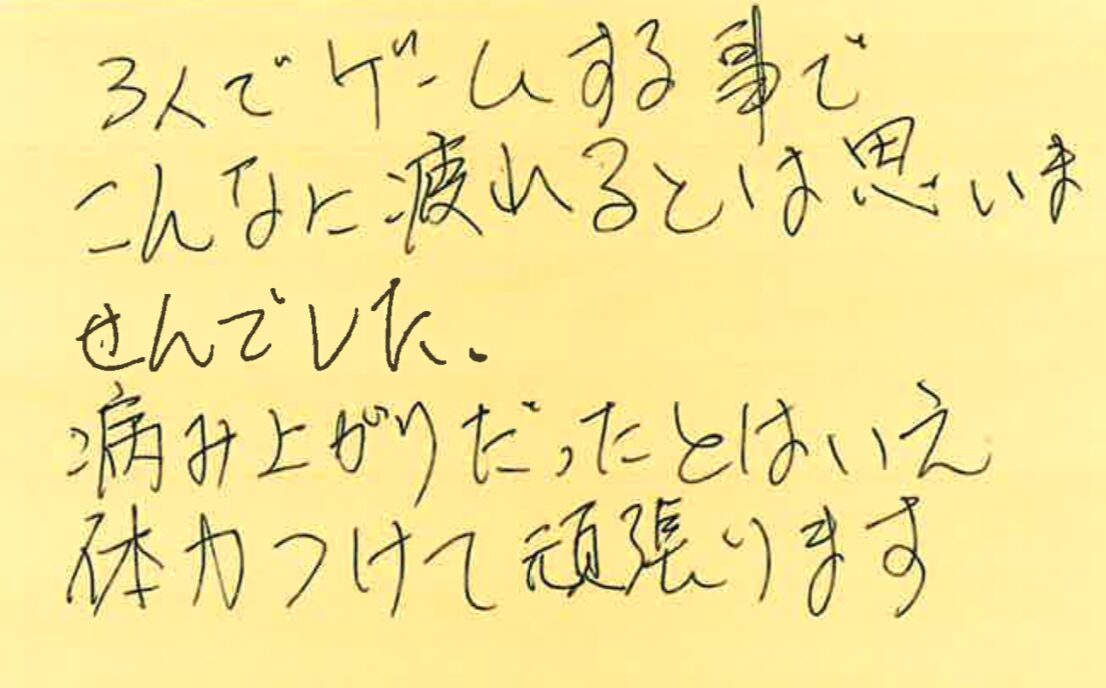 3人でゲームする事で
こんなに疲れるとは思いま
せんでした。
病み上がりだったとはいえ
体力つけて頑張ります